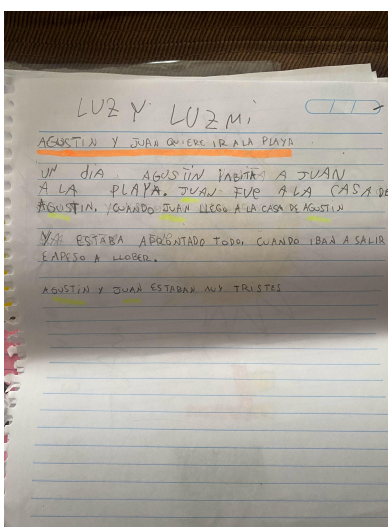 LUZ Y LUZMi
AGUSTIN Y JUAN QUIERE IR A LA PLAYA
UN dIA AGUSTIN INBITA A JUAN
A LA PLAYA. JUAN FUE A LA CASA DE
AGUSTIN. Y CUANDO JUAN LLEGO A LA CASA DE AGUSTIN
YA ESTABA APRONTADO TODO. CUANDO IBAN A SALIR
EMPESO A LLOBER.
AGUSTIN Y JUAN ESTABAN MUY TRISTES